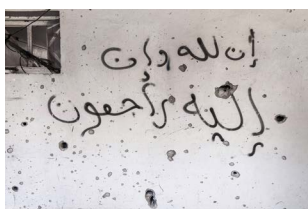 إن لله وإن
إليه رأجعون